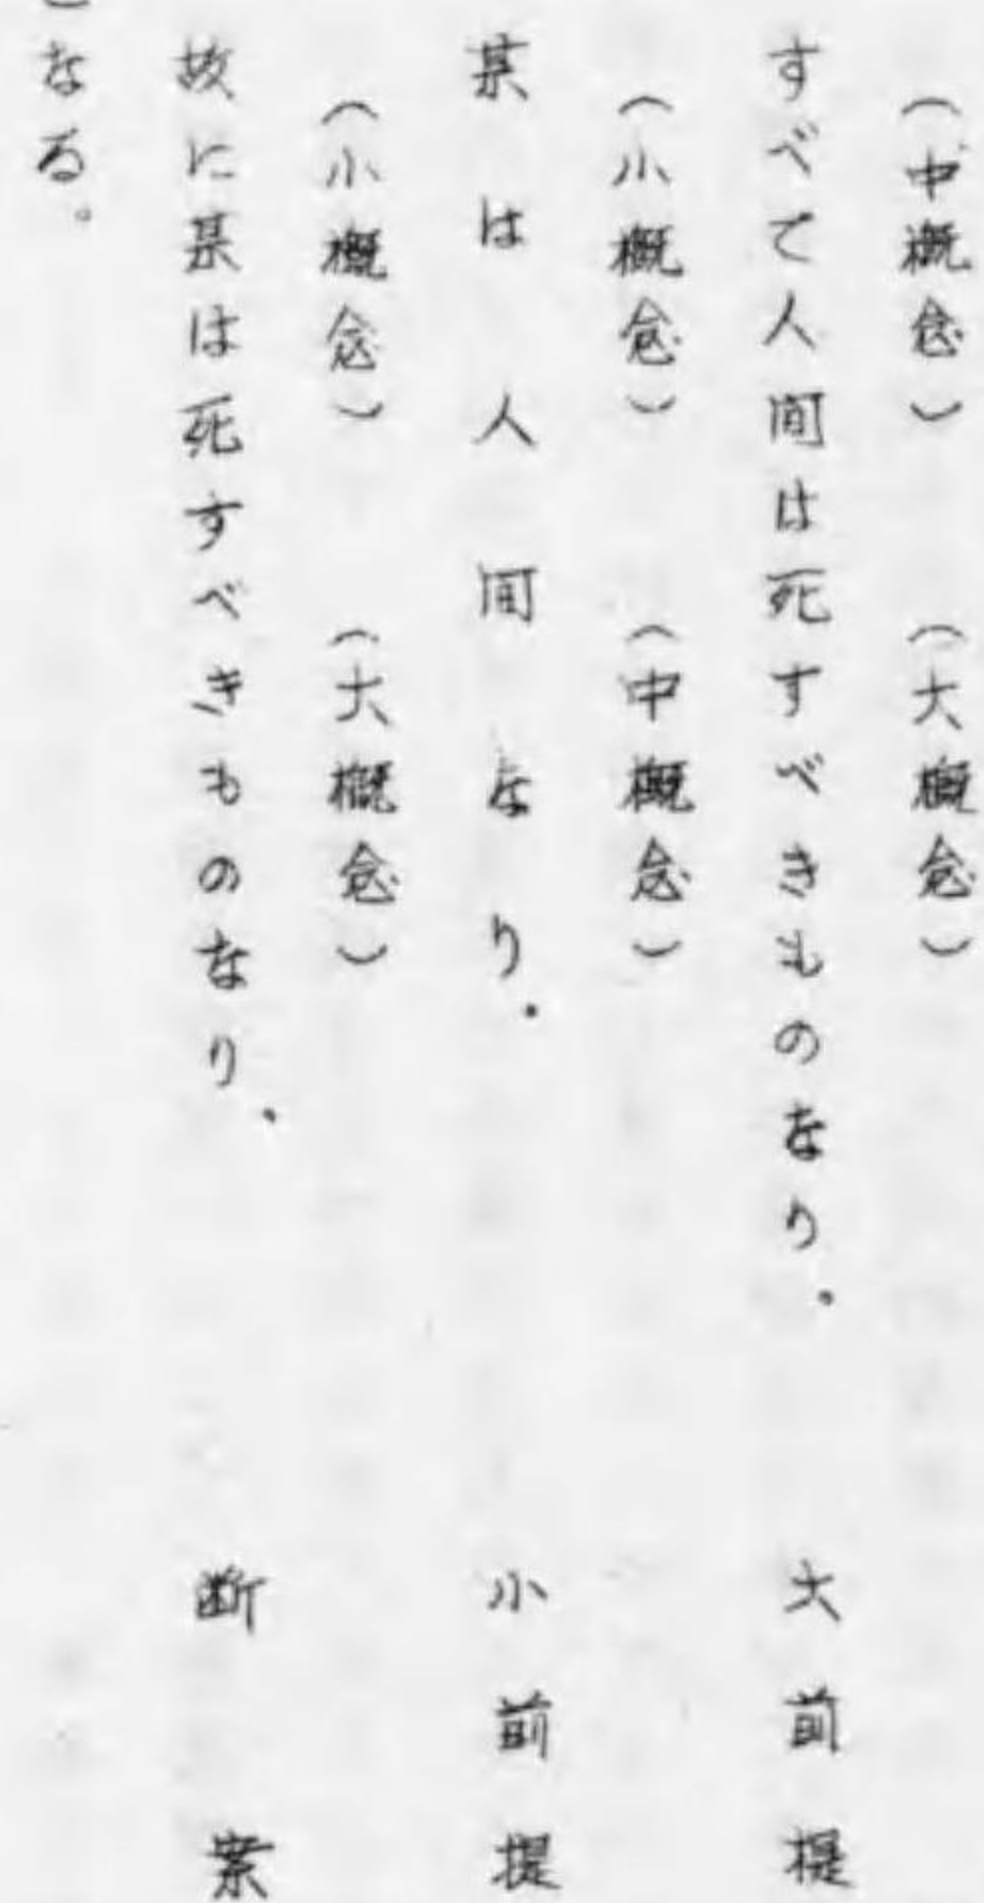 （中概念）（大概念）
すべて人間は死すべきものなり．大前提
（小概念）（中概念）
某は人間なり．小前提
（小概念）（大概念）
故に某は死すべきものなり．断案
なる。